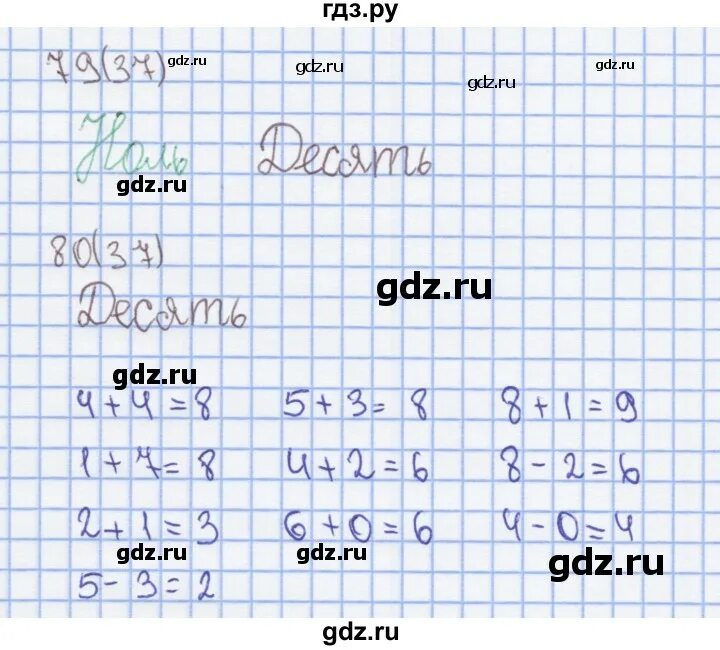 гдз.ру
79(37) gdz.ru gdz.ru gdz.ru gdz.ru
Ноль Десять
gdz.ru
80(37)
gdz.ru
Десять
gdz.ru
4+4=8 5+3=8 8+1=9
1+7=8 4+2=6 8-2=6
2+1=3 6+0=6 4-0=4
gdz.ru gdz.ru gdz.ru
5-3=2
gdz.ru